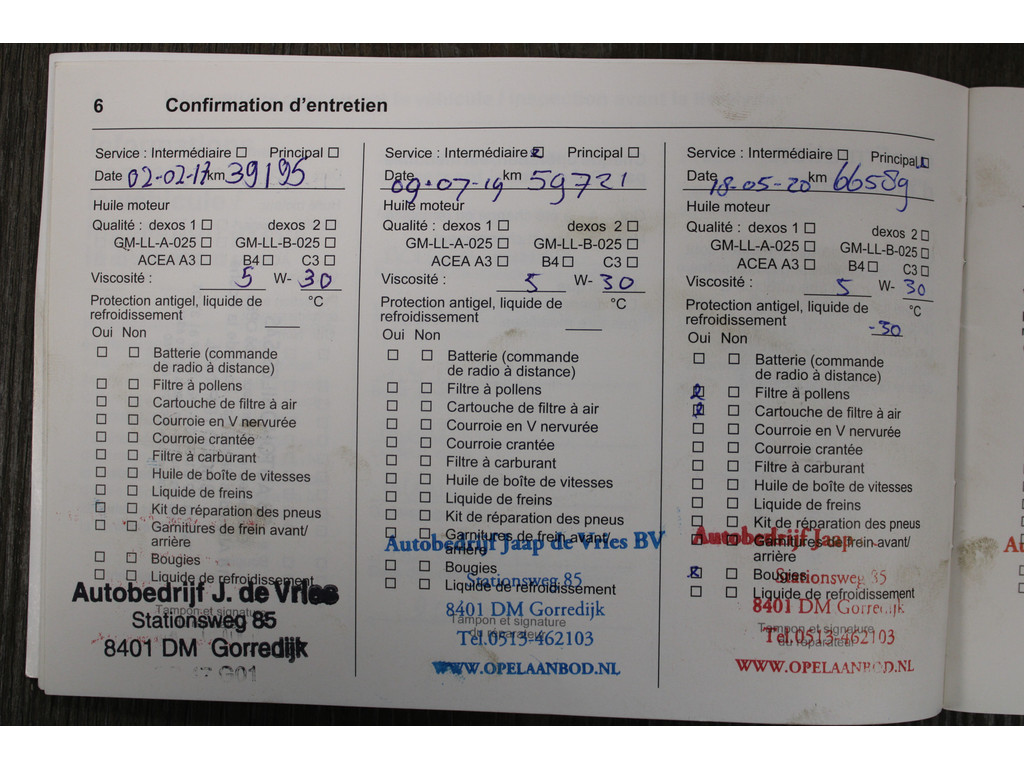 6 Confirmation d'entretien
Service : Intermédiaire ☐ Principal ☐
Date 02-02-17 km 39195
Huile moteur
Qualité : dexos 1 ☐ dexos 2 ☐
GM-LL-A-025 ☐ GM-LL-B-025 ☐
ACEA A3 ☐ B4 ☐ C3 ☐
Viscosité : 5 W- 30
Protection antigel, liquide de
refroidissement °C
Oui Non
☐ ☐ Batterie (commande
de radio à distance)
☐ ☐ Filtre à pollens
☐ ☐ Cartouche de filtre à air
☐ ☐ Courroie en V nervurée
☐ ☐ Courroie crantée
☐ ☐ Filtre à carburant
☐ ☐ Huile de boîte de vitesses
☐ ☐ Liquide de freins
☐ ☐ Kit de réparation des pneus
☐ ☐ Garnitures de frein avant/
arrière
☐ ☐ Bougies
☐ ☐ Liquide de refroidissement
Autobedrijf J. de Vries
Tampon et signature
Stationsweg 85
8401 DM Gorredijk
G01
Service : Intermédiaire ☒ Principal ☐
Date 09-07-19 km 59721
Huile moteur
Qualité : dexos 1 ☐ dexos 2 ☐
GM-LL-A-025 ☐ GM-LL-B-025 ☐
ACEA A3 ☐ B4 ☐ C3 ☐
Viscosité : 5 W- 30
Protection antigel, liquide de °C
refroidissement
Oui Non
☐ ☐ Batterie (commande
de radio à distance)
☐ ☐ Filtre à pollens
☐ ☐ Cartouche de filtre à air
☐ ☐ Courroie en V nervurée
☐ ☐ Courroie crantée
☐ ☐ Filtre à carburant
☐ ☐ Huile de boîte de vitesses
☐ ☐ Liquide de freins
☐ ☐ Kit de réparation des pneus
☐ ☐ Garnitures de frein avant/
Autobedrijf Jaap de Vries BV
arrière
☐ ☐ Bougies
Stationsweg 85
☐ ☐ Liquide de refroidissement
8401 DM Gorredijk
Tampon et signature
du réparateur
Tel.0513-462103
WWW.OPELAANBOD.NL
Service : Intermédiaire ☐ Principal ☒
Date 18-05-20 km 66589
Huile moteur
Qualité : dexos 1 ☐ dexos 2 ☐
GM-LL-A-025 ☐ GM-LL-B-025 ☐
ACEA A3 ☐ B4 ☐ C3 ☐
Viscosité : 5 W- 30
Protection antigel, liquide de °C
refroidissement -30
Oui Non
☐ ☐ Batterie (commande
de radio à distance)
☒ ☐ Filtre à pollens
☒ ☐ Cartouche de filtre à air
☐ ☐ Courroie en V nervurée
☐ ☐ Courroie crantée
☐ ☐ Filtre à carburant
☐ ☐ Huile de boîte de vitesses
☐ ☐ Liquide de freins
☐ ☐ Kit de réparation des pneus
☐ ☐ Garnitures de frein avant/
Autobedrijf Jaap
arrière
☒ ☐ Bougies
Stationsweg 85
☐ ☐ Liquide de refroidissement
8401 DM Gorredijk
Tampon et signature
du réparateur
Tel.0513-462103
WWW.OPELAANBOD.NL